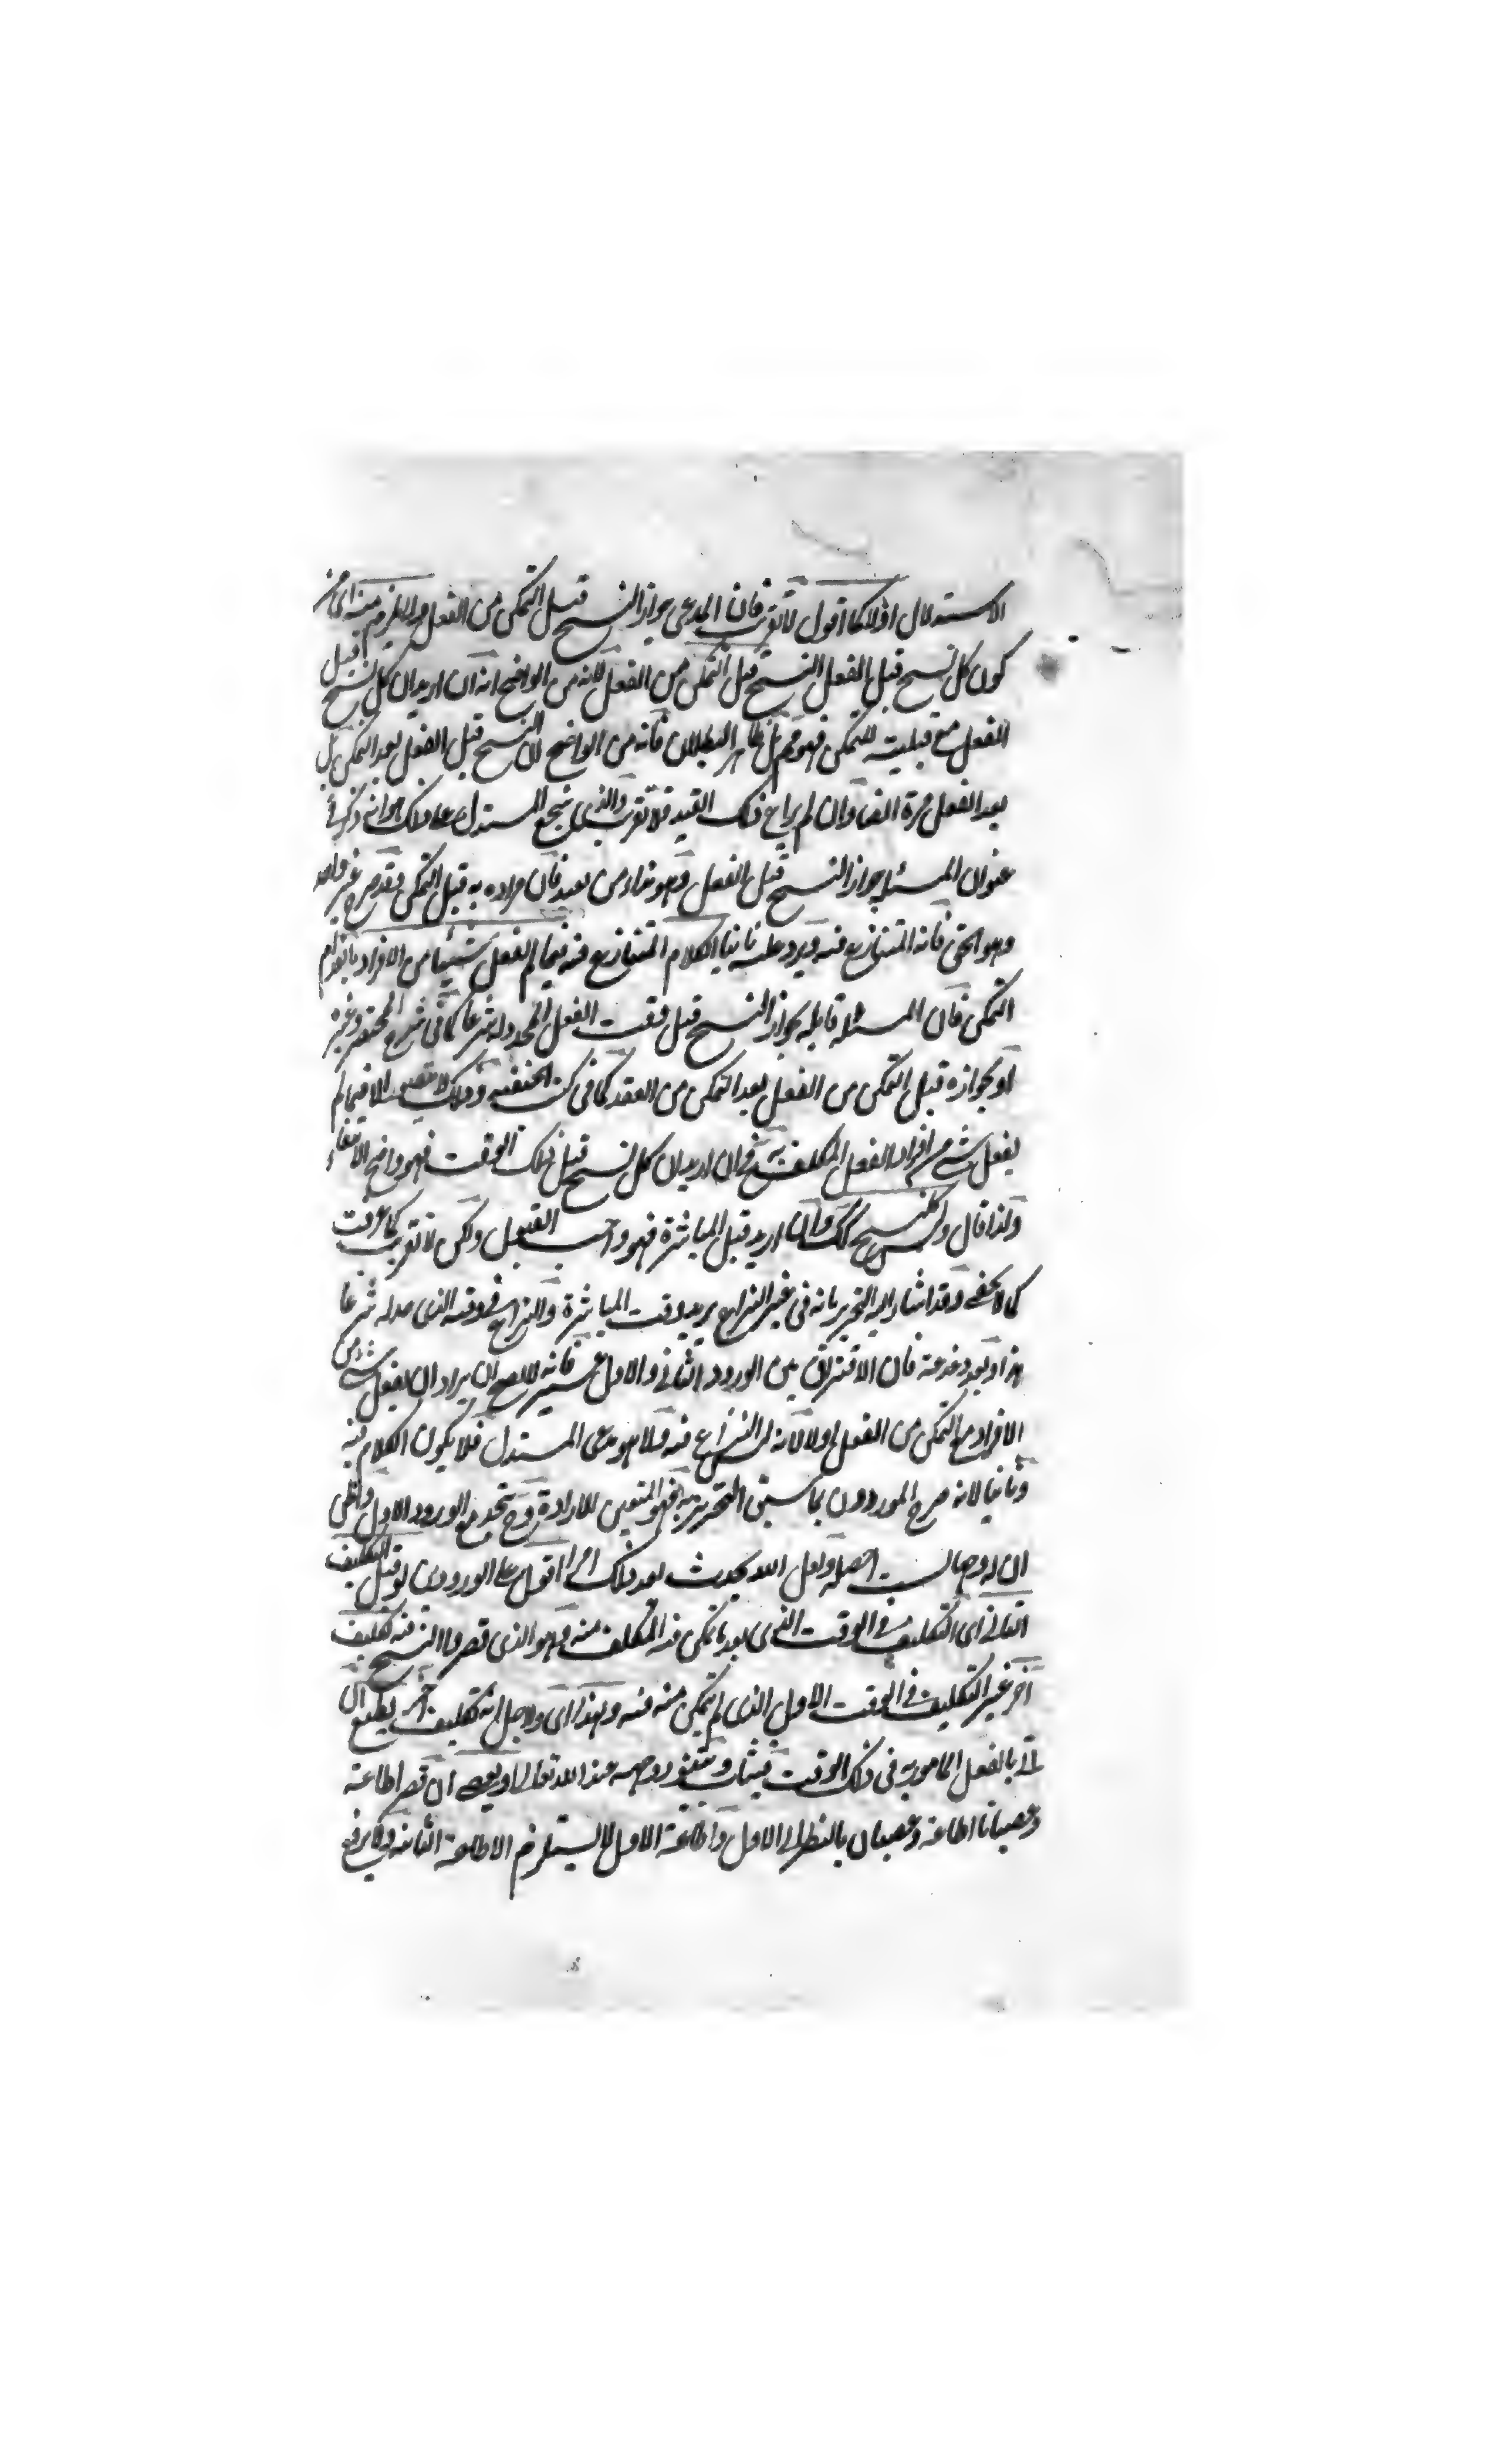 الاستدلال اولا كما اقول لا تقريب فان المدعى جواز النسخ قبل التمكن من الفعل ولا يلزم منه اى من
كون كل نسخ قبل الفعل النسخ قبل التمكن من الفعل لانه من الواضح انه ان اريد ان كل نسخ قبل
الفعل مع قبليته للتمكن فهو ظاهر البطلان فانه من الواضح ان النسخ قبل الفعل بعد التمكن بل
بعد الفعل مرة ايضا وان لم يراع ذلك القيد فلا تقريب والذى شجع المستدل على ذلك هو انه ذكر فى
عنوان المسئلة جواز النسخ قبل الفعل وهو نداء من بعيد فان مراده به قبل التمكن وقد صرح غير واحد
وهو الحق فانه المتنازع فيه ويرد عليه ثانيا الكلام المتنازع فيه فيما لم يفعل شيئا من الافراد بانعدام
التمكن فان المسئلة قابلة بجواز النسخ قبل وقت الفعل المحدود له شرعا كما فى شرح المختصر وغيره
او بجوازه قبل التمكن من الفعل بعد التمكن من العقد كما فى كتب الحنفية وذلك لا يتصور الا فيما لم
يفعل شئ من افراد الفعل المكلف به فح ان اريد ان كل نسخ قبل ذلك الوقت فهو واضح الانتفاء
ولذا قال وليس كل نسخ كك وان اريد قبل المباشرة فهو واجب القبول ولكن لا تقريب كما عرفت
كما لا يخفى وقد اشار اليه التحرير بانه فى غير النزاع يريد وقت المباشرة والنزاع فى وقته الذى حد له شرعا
هذا وبعد دغدغة فان الافتراق بين الورود الثانى والاول عسير فانه لا يصح ان يراد ان لا يفعل شئ من
الافراد مع التمكن من الفعل اولا لانه ليس النزاع فيه ولا هو مدعى المستدل فلا يكون الكلام فيه
وثانيا لانه صرح الموردون بما سبق التحرير به فهو المتعين للارادة وح يتحد مع الورود الاول واظن
ان له وجها لست احصله ولعل الله يحدث بعد ذلك امرا اقول على الورودين لو قيل التكليف
الثانى اى التكليف فى الوقت الذى بعد ما تمكن فيه المكلف منه وهو الذى قصر ولا النسخ فيه تكليف
آخر غير التكليف فى الوقت الاول الذى لم يتمكن منه فيه ولهذا اى ولاجل انه تكليف آخر يطيع ان
اتى بالفعل المامور به فى ذلك الوقت فيثاب وتنفرد وجهه عند الله تعالى ويعصى ان قصر اطاعة
وعصيانا اطاعة وعصيان بالنظر الى الاول واطاعة الاول لا يستلزم الاطاعة الثانية ولا يرفع